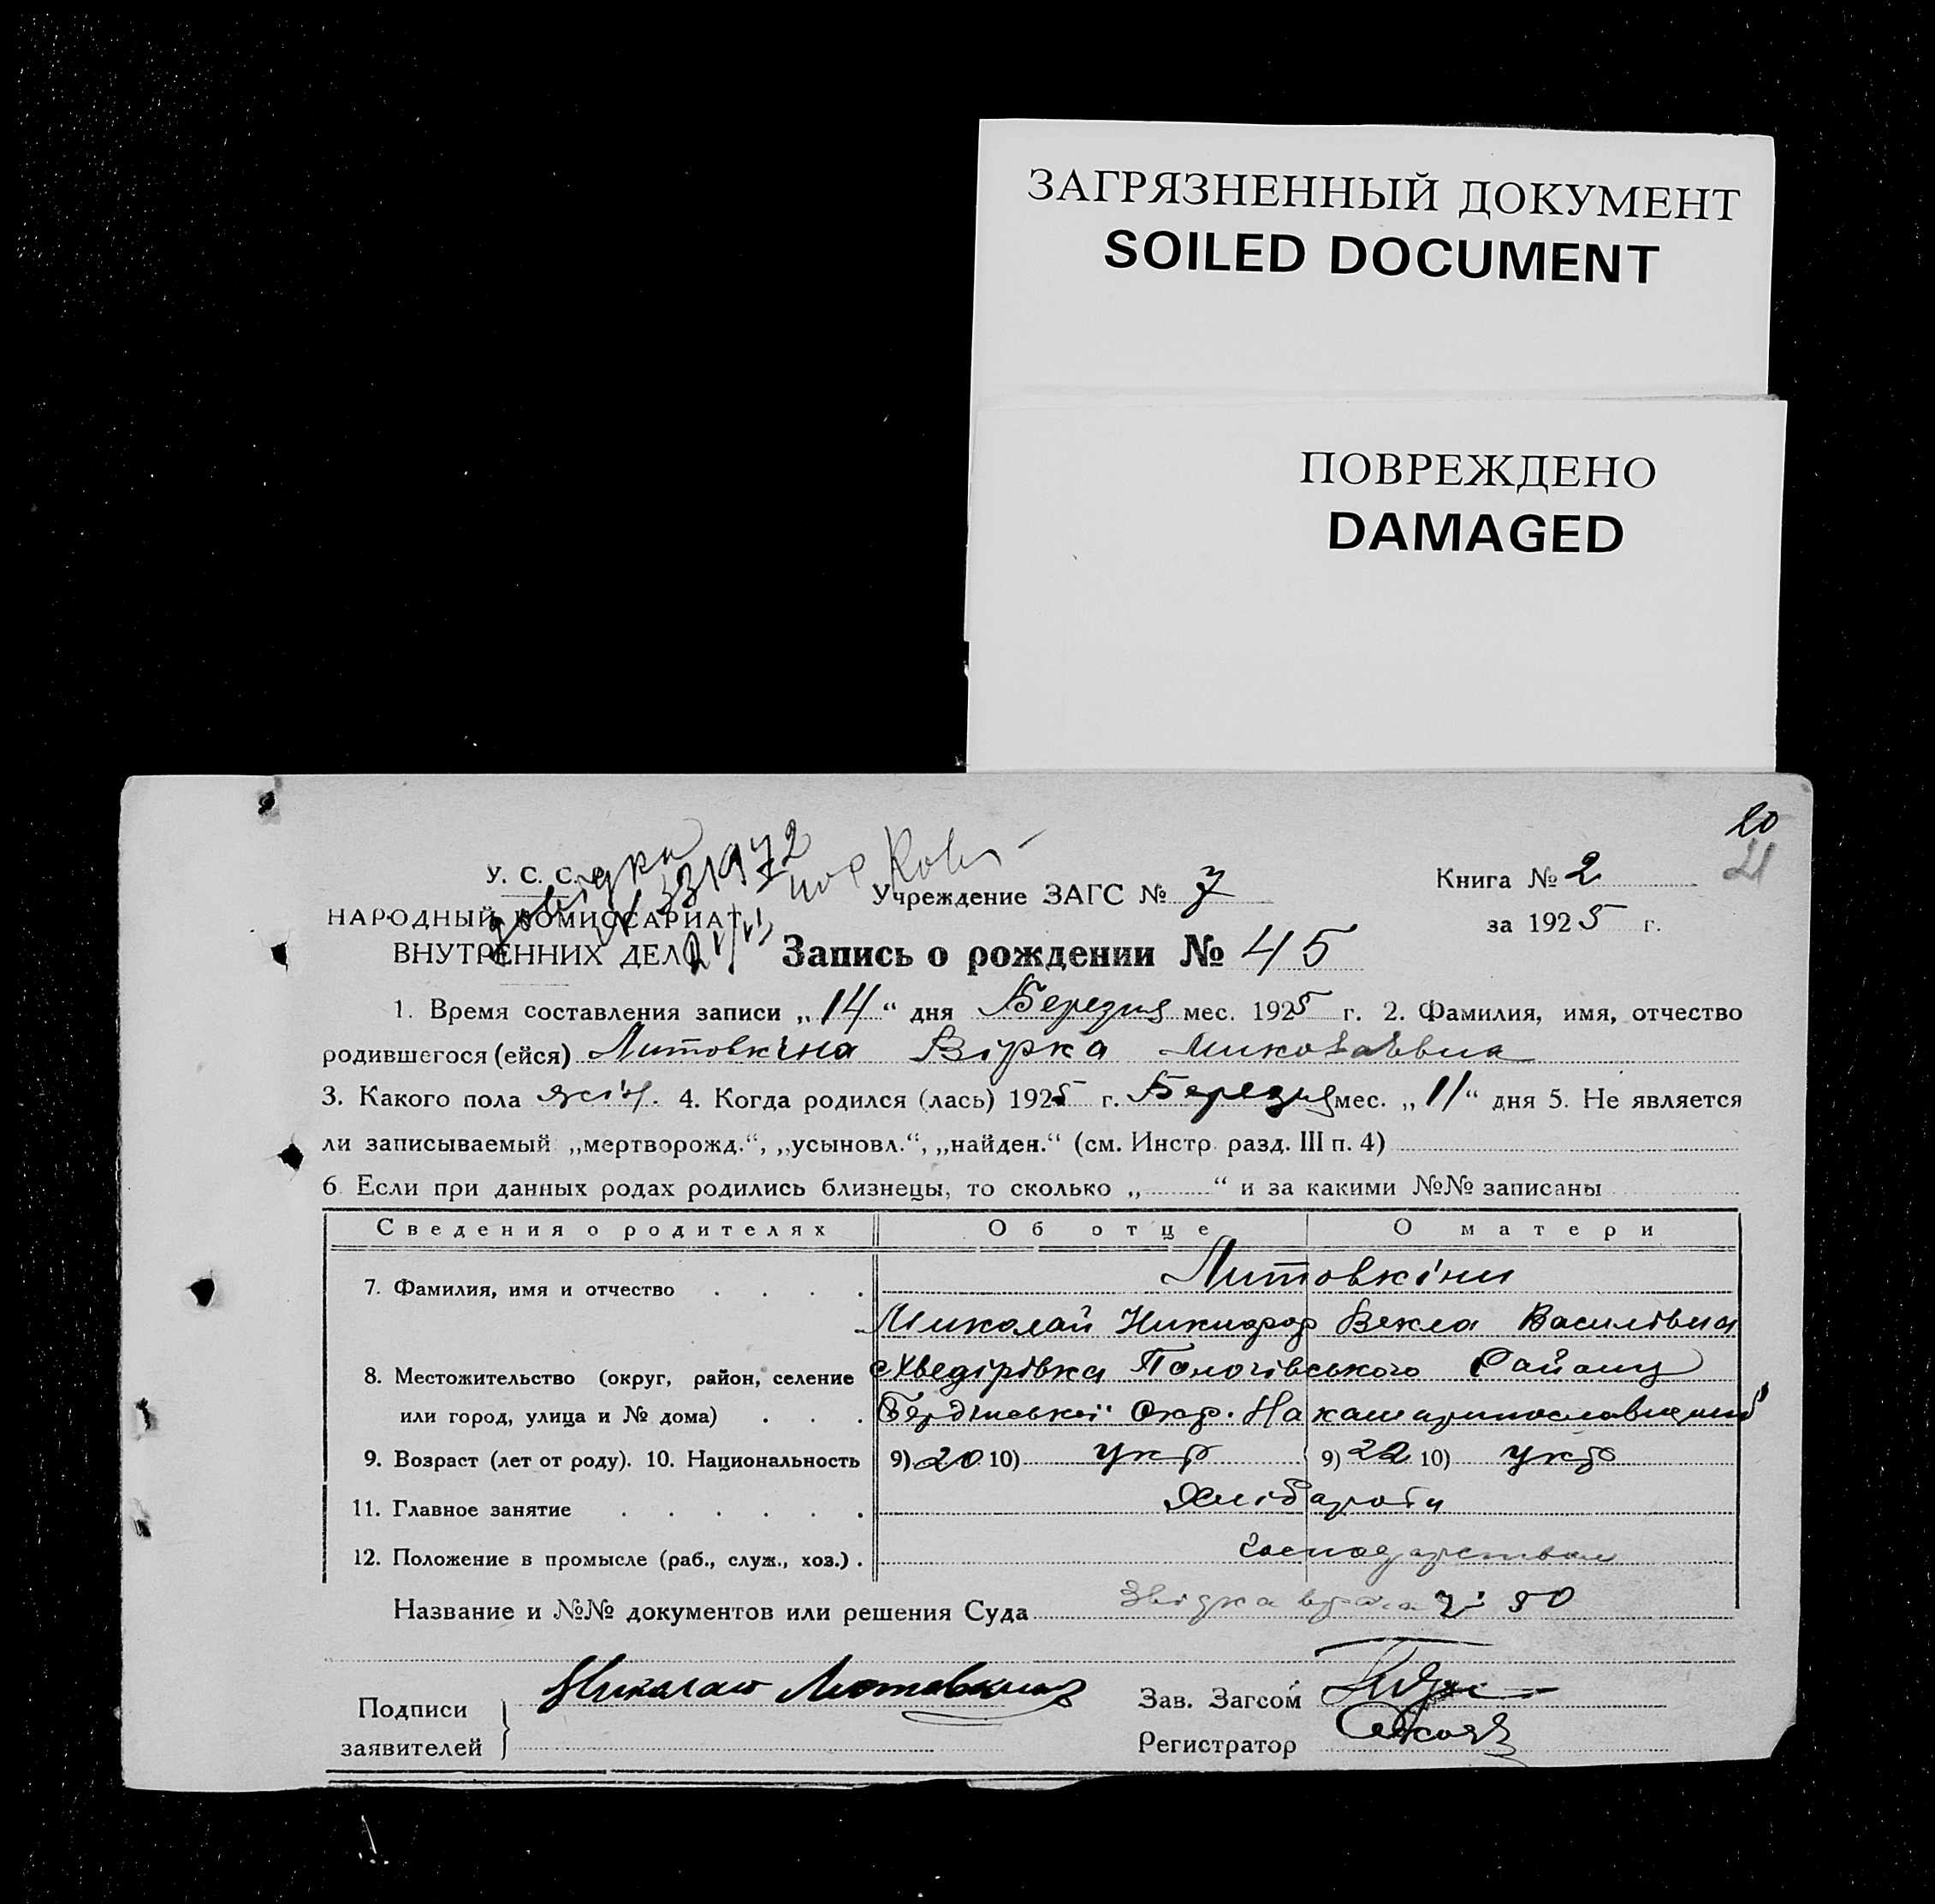 ЗАГРЯЗНЕННЫЙ ДОКУМЕНТ
SOILED DOCUMENT
ПОВРЕЖДЕНО
DAMAGED
20
21
У. С. С. Р.
НАРОДНЫЙ КОМИССАРИАТ
ВНУТРЕННИХ ДЕЛ
Учреждение ЗАГС № 7
Книга № 2
за 1925 г.
Запись о рождении № 45
1. Время составления записи „14“ дня Березня мес. 1925 г. 2. Фамилия, имя, отчество
родившегося (ейся) Литовкіна Вірка Миколаевна
3. Какого пола жін. 4. Когда родился (лась) 1925 г. Березня мес. „11“ дня 5. Не является
ли записываемый „мертворожд.“, „усыновл.“, „найден.“ (см. Инстр. разд. III п. 4)
6. Если при данных родах родились близнецы, то сколько „ “ и за какими №№ записаны
Сведения о родителях Об отце О матери
7. Фамилия, имя и отчество . . . . Литовкіни
Миколай Никифор Векла Василівна
8. Местожительство (округ, район, селение с Хведірівка Пологівського Району
или город, улица и № дома) . . . Бердянської Окр. На
9. Возраст (лет от роду). 10. Национальность 9) 20 10) укр 9) 22 10) укр
11. Главное занятие . . . . . . Хлібороби
12. Положение в промысле (раб., служ., хоз.) . господарством
Название и №№ документов или решения Суда 30
Подписи
заявителей
Николаю Литовкин
Зав. Загсом
Регистратор